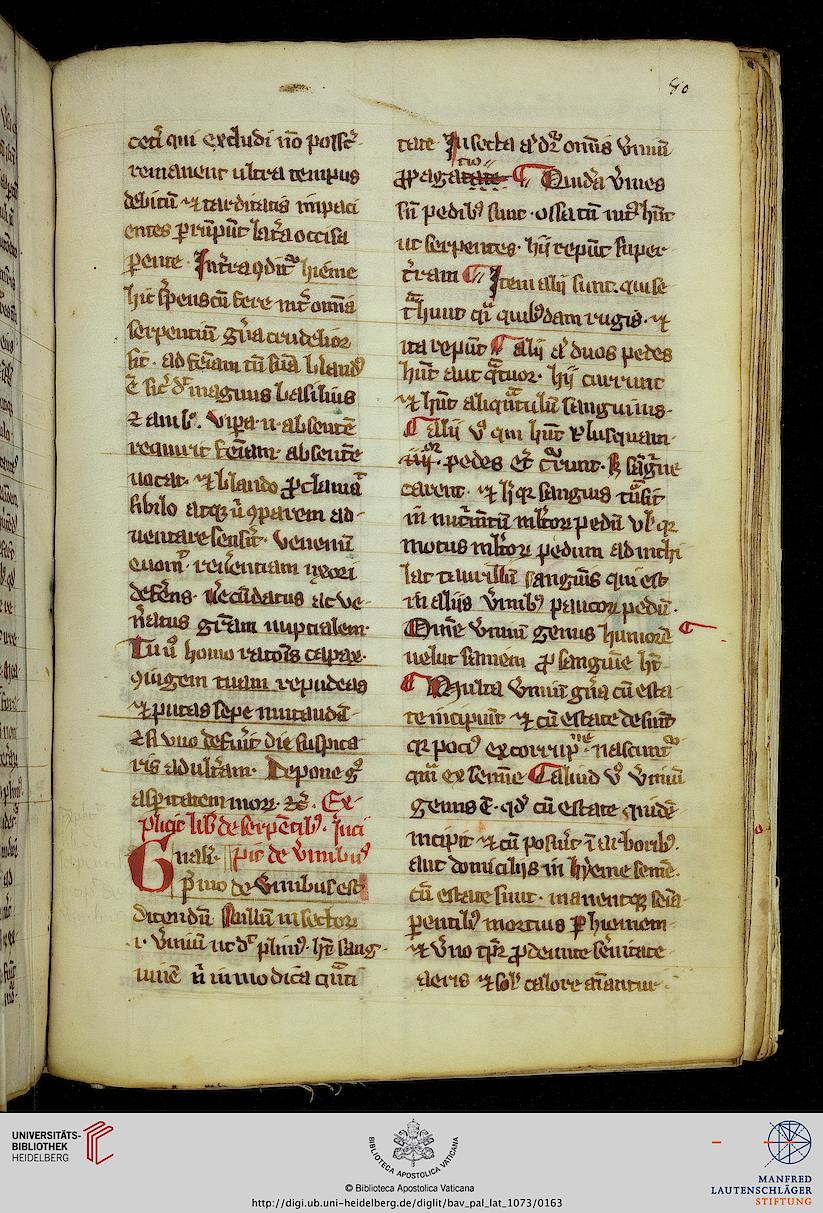 80
ceti qui excludi no possūt
remanent ultra tempus
debitū et tarditatis impaci
entes prūpūt lat̄a occisa
pente. Int̄ra ꝯdit hieme
hic
serpentiū gn̄a crudelior
sit. ad feīam tn̄ suā bland
ē sic dt̄ magnus basilius
et amb. vipa n̄ absentē
requirit feīam absentē
uocat et blando ꝓclamat
sibilo atqꝫ ū ꝯparem ad-
uentare sensit. venenū
euomit reuerentiam uxori
deferens. uerecūdatus ac ve-
neratus grām nuptialem.
Tu ū homo rationis capax
ꝯiugem tuam repudeas
et putas sepe mutandā
et si uno defuit die suspica
ris adultam. Depone g̊
aspitatem morꝝ etc̄. Ex-
plicit lib de serpētib. Inci
Gnalr̄. pit de v̄mibus
primo de v̄mibus est
dicendū. Nullū insectorꝝ
.i. v̄miū ut dt̄ plinꝰ. ht̄ sang-
uinē n̄ in modica qn̄ti
tate Insecta a dr̄ om̄is v̄miū
ꝓpagatate tio Quida v̄mes
sn̄ pedibꝰ sunt. ossa tn̄ int̄ hn̄t
ut serpentes. hij repūt super
t̄ram Item alij sunt. qui se
t̄hunt quibꝰdam rugis. et
ita repūt Alij a duos pedes
hn̄t aut qͣtuor. hij currunt
et hn̄t aliqn̄tulū sanguinis.
Alij v̊ qui hn̄t plusquam
.iiij. pedes currunt. sꝫ sāgūe
carent. et h̄ qꝛ sanguis cūsit
in nutmtū mltorꝝ pedū vl̄ qꝛ
motus mltorꝝ pedum adnichi
lat tantillū sanguis qui est
in alijs v̄mibꝰ paucorꝝ pedū.
Om̄e v̄miū genus humorē
velut saniem ꝓ sanguine ht̄.
Multa v̄miū gn̄a cū esta
te incipiūt et cū estate desinūt
qꝛ pociꝰ ex corrupne nascunt
qm̄ ex semīe Aliud v̊ v̄miū
genus ē. qd̄ cū estate quidē
incipit et cū posuīt ī arboribꝰ.
aut domicilijs in hyeme semē.
cū estate finit. manentqꝫ
pentibꝰ mortuis ꝑ hiemem
et v̄no tpr̄ ꝓdeunte sēnitate
aeris et sol̄ calore aīantur
UNIVERSITÄTS-
BIBLIOTHEK
HEIDELBERG
BIBLIOTECA APOSTOLICA VATICANA
© Biblioteca Apostolica Vaticana
http://digi.ub.uni-heidelberg.de/diglit/bav_pal_lat_1073/0163
MANFRED
LAUTENSCHLÄGER
STIFTUNG